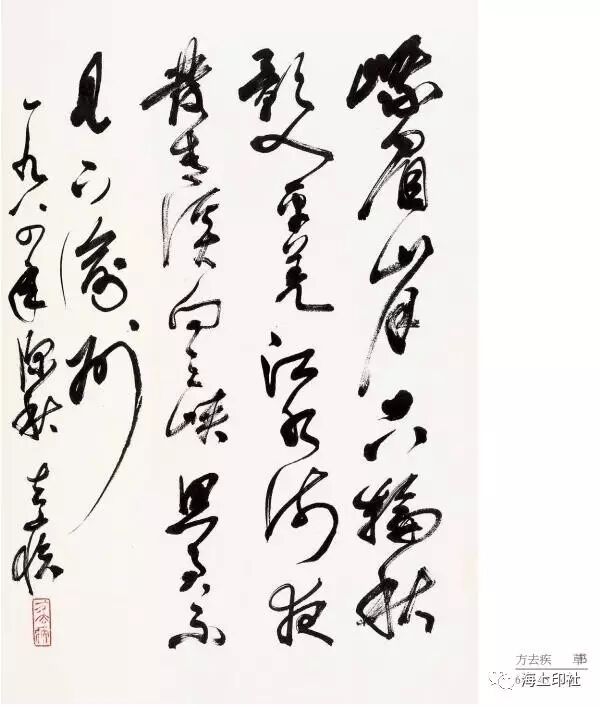 峨眉山月半輪秋
影入平羌江水流夜
發清溪向三峽思君不
見下渝州
一九八四年深秋 去疾
方去疾
方去疾
海上印社